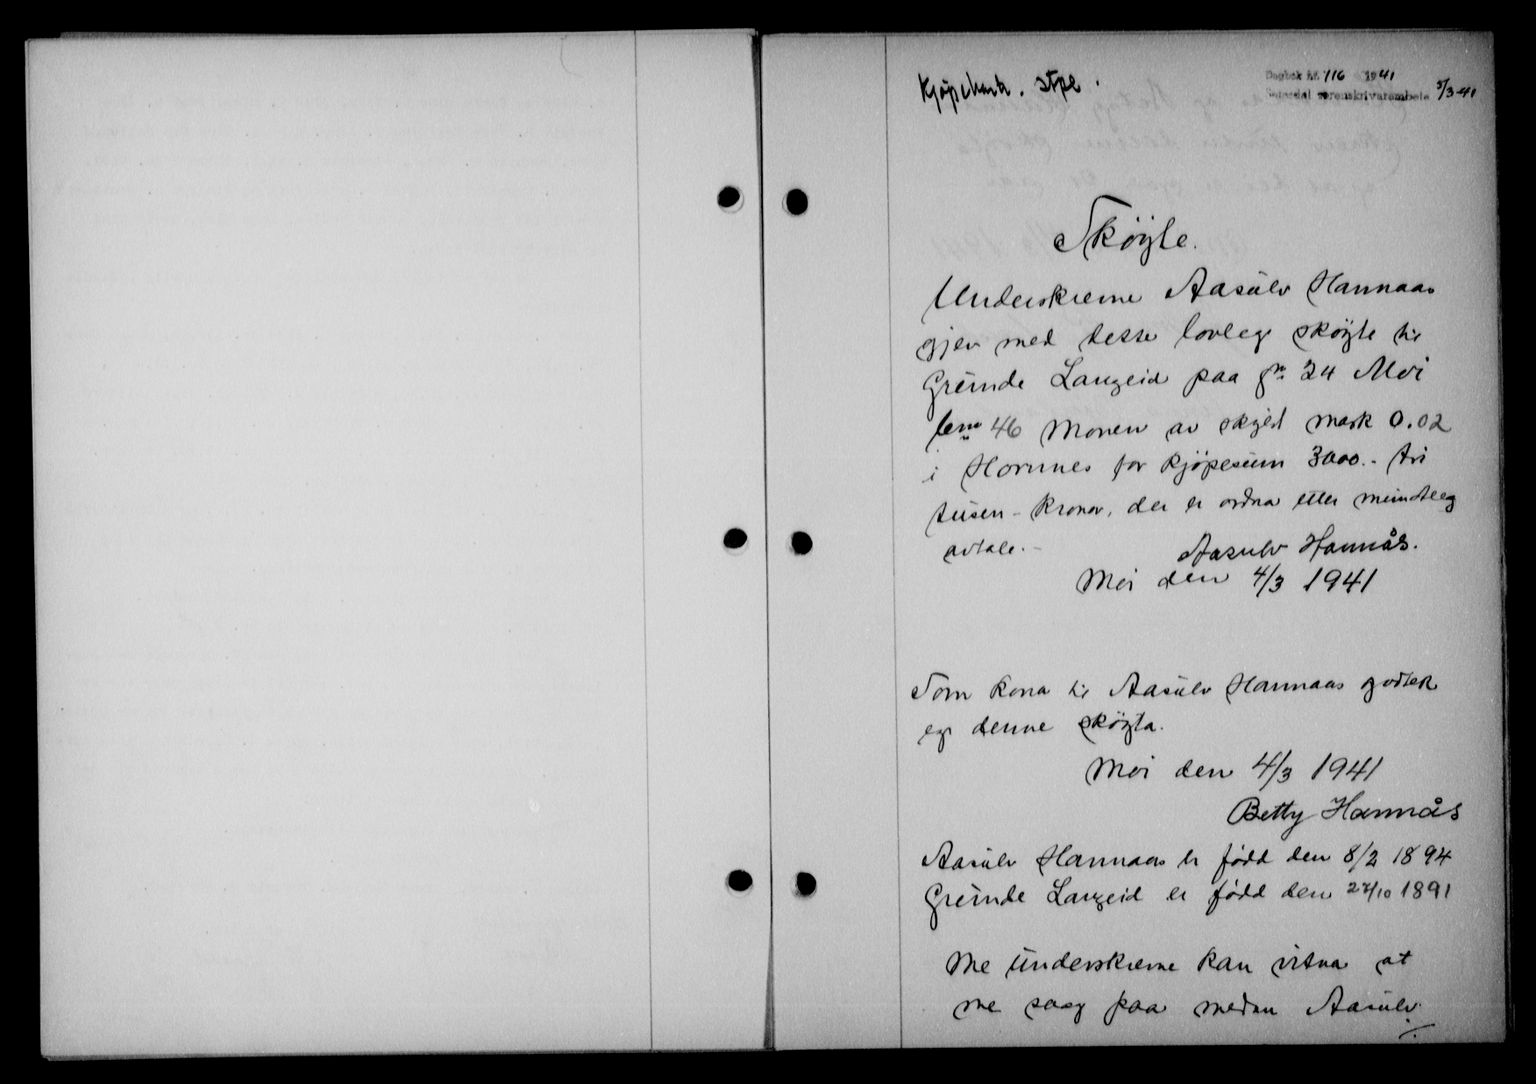 Kjøpekontr. stpl.
Dagbok nr. 116 1941
Setesdal sorenskrivarembete 5/3-41
Skøyte.
Underskrevne Aasulv Hannaas
gjev med dette lovleg skøyte til
Greinde Langeid paa gn 24 Moi
bnr 46 Monen av skyld mark 0.02
i Hornnes for kjøpesum 3000.- tri
tusen - kronor, der er ordna etter muntleg
avtale.-
Aasulv Hannås.
Moi den 4/3 1941
Som kona til Aasulv Hannaas godtek
eg denne skøyta.
Moi den 4/3 1941
Betty Hannås
Aasulv Hannaas er fødd den 8/2 1894
Greinde Langeid er fødd den 27/10 1891
Me underskrevne kan vitna at
me saag paa medan Aasulv